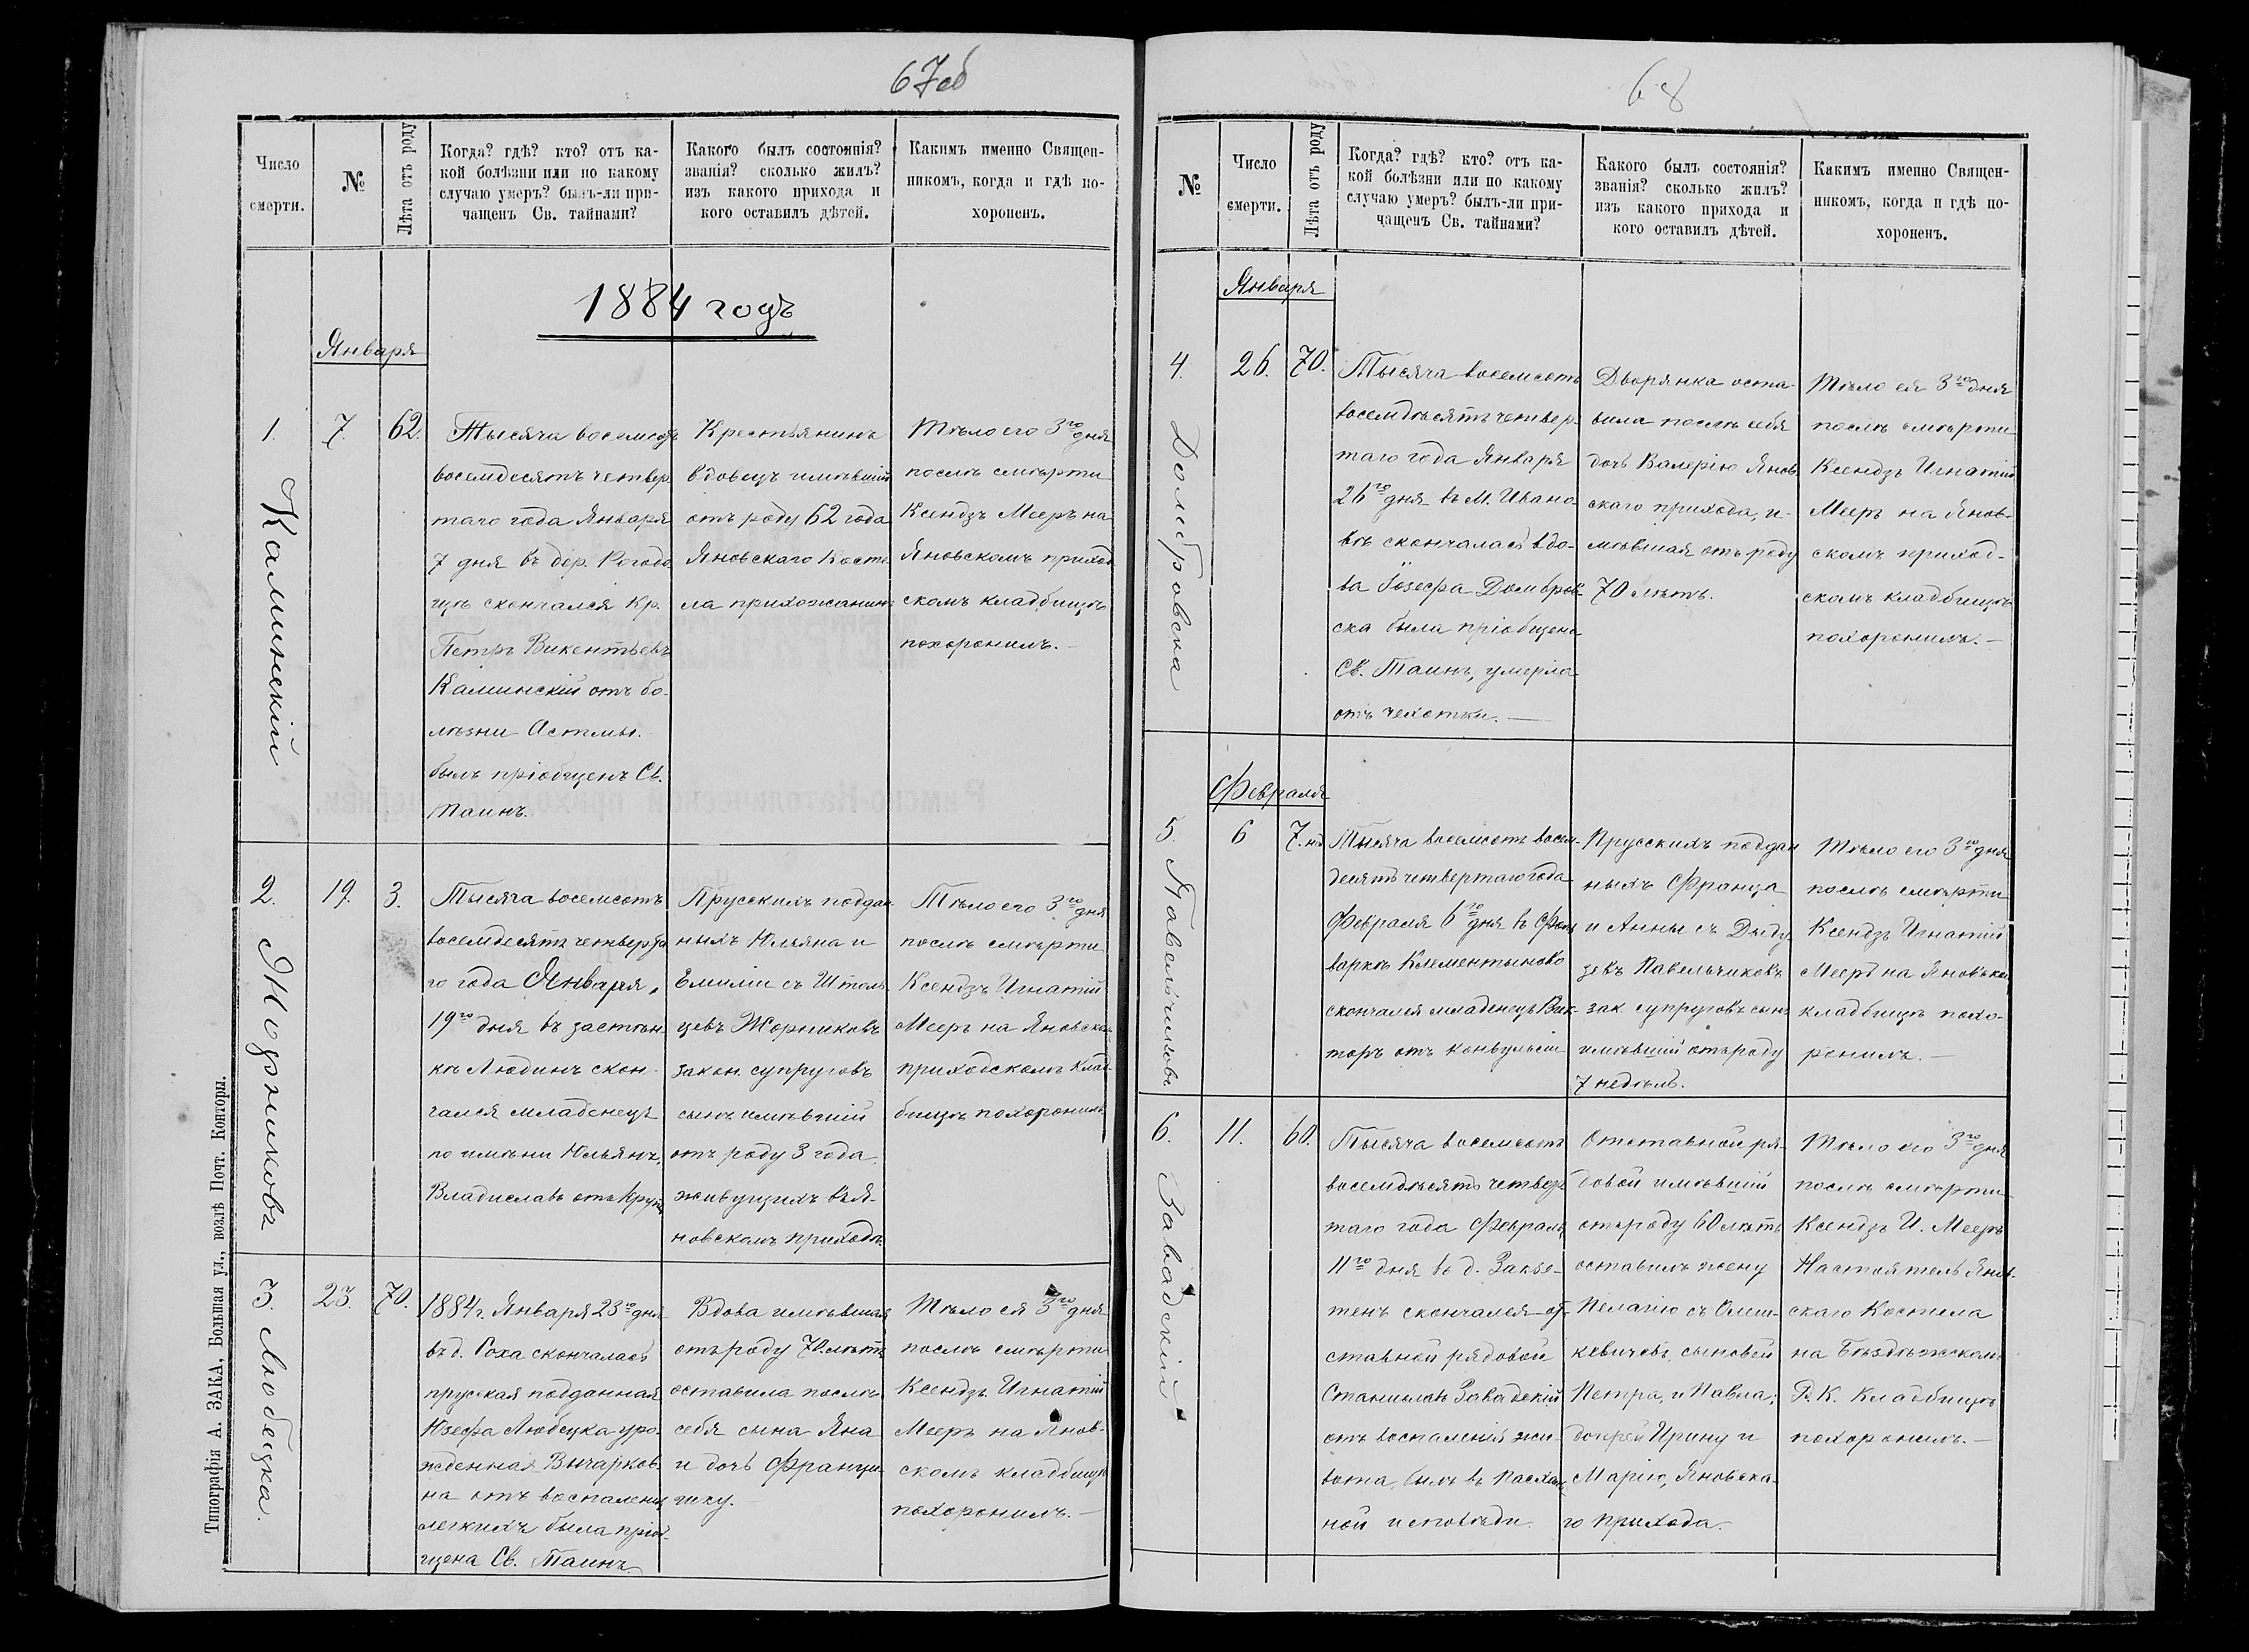 67об
Число
смерти.
№
Лѣта отъ роду
Когда? гдѣ? кто? отъ ка-
кой болѣзни или по какому
случаю умеръ? былъ-ли при-
чащенъ Св. тайнами?
Какого былъ состоянія?
званія? сколько жилъ?
изъ какого прихода и
кого оставилъ дѣтей.
Какимъ именно Священ-
никомъ, когда и гдѣ по-
хороненъ.
1884 годъ
Января
1.
Каминскій
7.
62.
Тысяча восемсотъ
восемдесятъ четвер
таго года Января
7 дня въ дер. Рогодо
щѣ скончался Кр.
Петръ Викентьевъ
Каминскій отъ бо-
лѣзни Астмы.
былъ пріобщенъ Св.
Таинъ.
Крестьянинъ
вдовецъ имѣвшій
отъ роду 62 года
Яновскаго Косте
ла прихожанинъ
Тѣло его 3го дня
послѣ смѣрти
Ксендзъ Мееръ на
Яновскомъ приход
скомъ кладбищѣ
похоронилъ.-
2.
Жорниковъ
19.
3.
Тысяча восемсотъ
восемдесятъ четверта
го года Января,
19го дня въ застѣн-
кѣ Людинъ скон-
чался младенецъ
по имѣни Юльянъ,
Владиславъ отъ Крупа
Прусскихъ поддан
ныхъ Юльяна и
Емиліи съ Штоль
цевъ Жорниковъ
закон. супруговъ
сынъ имѣвшій
отъ роду 3 года.
живущихъ въ Я-
новскомъ приходѣ.
Тѣло его 3го дня
послѣ смѣрти
Ксендзъ Игнатій
Мееръ на Яновском
приходскомъ клад-
бищѣ похоронилъ
3.
Любецка.
23.
70.
1884 г. Января 23го дня
въ д. Соха скончалась
прусская подданная
Юзефа Любецка уро-
жденная Вычарков-
на отъ воспаленія
легкихъ была пріоб-
щена Св. Таинъ
Вдова имѣвшая
отъ роду 70 лѣтъ
оставила послѣ
себя сына Яна
и дочь Францы-
шку.-
Тѣло ея 3го дня
послѣ смѣрти
Ксендзъ Игнатій
Мееръ на Янов-
скомъ кладбищѣ
похоронилъ.-
Типографія А. ЗАКА, Большая ул., возлѣ Почт. Конторы.
68
№
Число
смерти.
Лѣта отъ роду
Когда? гдѣ? кто? отъ ка-
кой болѣзни или по какому
случаю умеръ? былъ-ли при-
чащенъ Св. тайнами?
Какого былъ состоянія?
званія? сколько жилъ?
изъ какого прихода и
кого оставилъ дѣтей.
Какимъ именно Священ-
никомъ, когда и гдѣ по-
хороненъ.
Января
4.
Домбровска
26.
70.
Тысяча восемсотъ
восемдѣсятъ четвер-
таго года Января
26го дня въ М. Ивано-
вѣ скончалась вдо-
ва Іозефа Домбров-
ска была пріобщена
Св. Таинъ, умерла
отъ чехотки.-
Дворянка оста-
вила послѣ себя
дочь Валерію Янов
скаго прихода, и-
мѣвшая отъ роду
70 лѣтъ.
Тѣло ея 3го дня
послѣ смѣрти
Ксендзъ Игнатій
Мееръ на Янов-
скомъ приход-
скомъ кладбищѣ
похоронилъ.-
Февраля
5.
Павельчиковъ
6
7. нд
Тысяча восемсотъ восем-
десятъ четвертаго года
Февраля 6го дня въ Фоль
варкѣ Клементыново
скончался младенецъ Вик-
торъ отъ конвульсіи
Прусскихъ поддан
ныхъ Франца
и Анны съ Дыду
зевъ Павельчиковъ
зак. супруговъ сынъ
имѣвшій отъ роду
7 недѣль.
Тѣло его 3го дня
послѣ смѣрти
Ксендзъ Игнатій
Мееръ на Яновском
кладбищѣ похо-
ронилъ.-
6.
Завадскій
11.
60.
Тысяча восемсотъ
восемдѣсятъ четвер
таго года Февраля
11го дня въ д. Закзе-
тенъ скончался от-
ставной рядовой
Станиславъ Завадскій
отъ воспаленія жи-
вота, былъ въ Пасхаль
ной исповѣди.
Отставной ря-
довой имѣвшій
отъ роду 60 лѣтъ
оставилъ жену
Пелагію съ Олеш-
кевичовъ, сыновей
Петра, и Павла;
дочерей Ирину и
Марію, Яновска-
го прихода.
Тѣло его 3го дня
послѣ смѣрти
Ксендзъ И. Мееръ
Настоятель Янов-
скаго Костела
на Бѣздѣжскомъ
Р. К. Кладбищѣ
похоронилъ.-